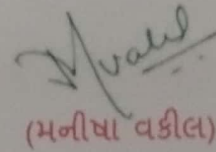 (મનીષા વકીલ)